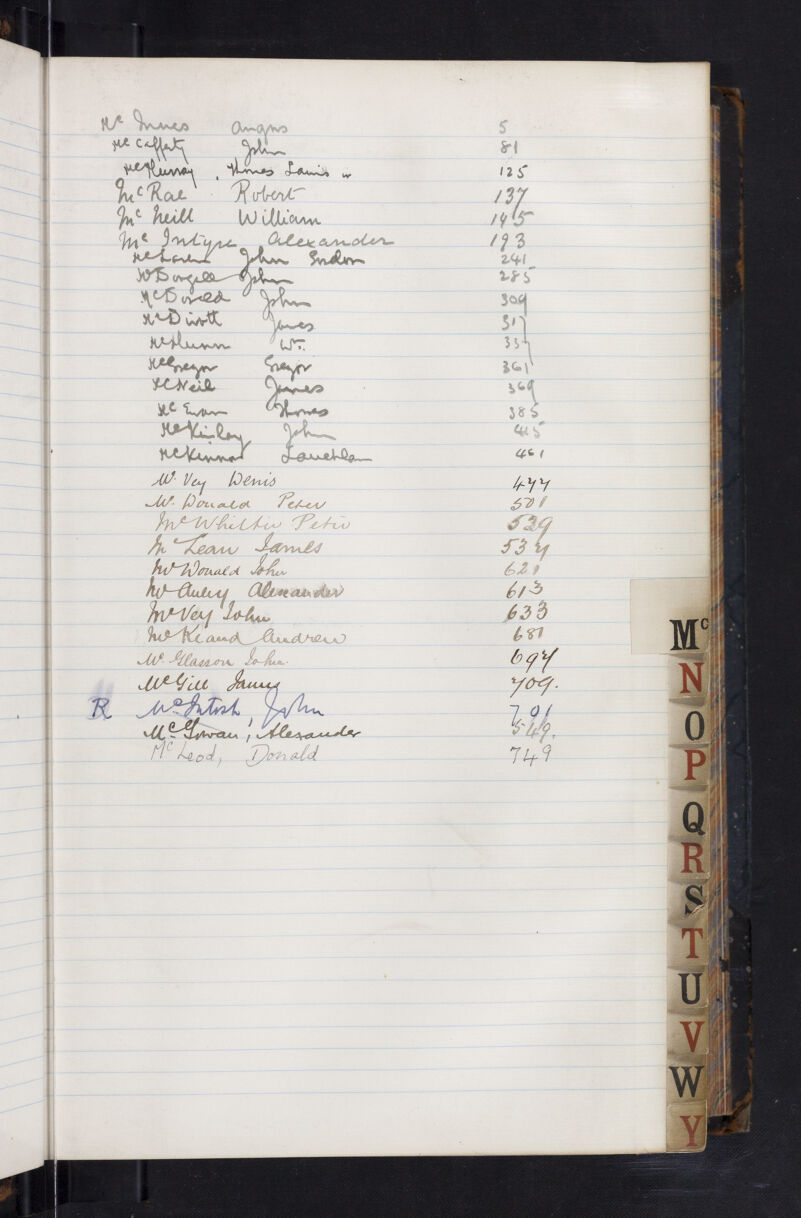 Mc Innes Angus 5
Mc Cafferty John 81
McMurray, Thomas Lewis 125
McRae Robert 137
Mc Neill William 145
Mc Intyre Alexander 193
McLaren John Gordon 241
McDougall John 285
McDonald John 309
James 317
Wm. 337
McGregor Gregor 361
McNeil James 369
Mc Ewan Thomas 385
McKinlay John 415
McKinnon Lauchlan 461
Mc Vey Denis 477
Mc Donald Peter 501
McWhirter Peter 529
Mc Lean James 537
Mc Donald John 621
Mc Alexander 613
McVey John 633
McKeand Andrew 681
Mc Glasson John 697
McGill James 709.
R McIntosh John 701
McGowan, Alexander 549.
McLeod, Donald 749
Mc
N
O
P
Q
R
S
T
U
V
W
Y